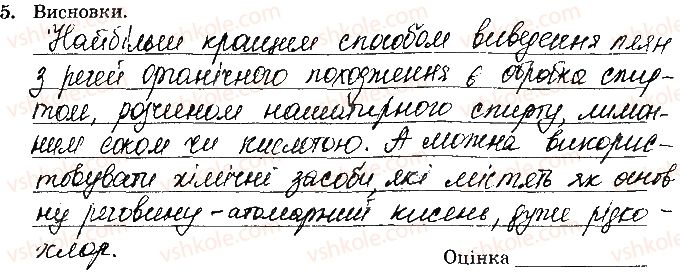 5. Висновки.
Найбільш кращим способом виведення плям
з речей органічного походження є обробка спир-
том, розчином нашатирного спирту, лимон-
ним соком чи кислотою. А можна викорис-
товувати хімічні засоби, які містять як основ
ну речовину - атомарний кисень, дуже рідко -
хлор.
Оцінка
vshkole.com